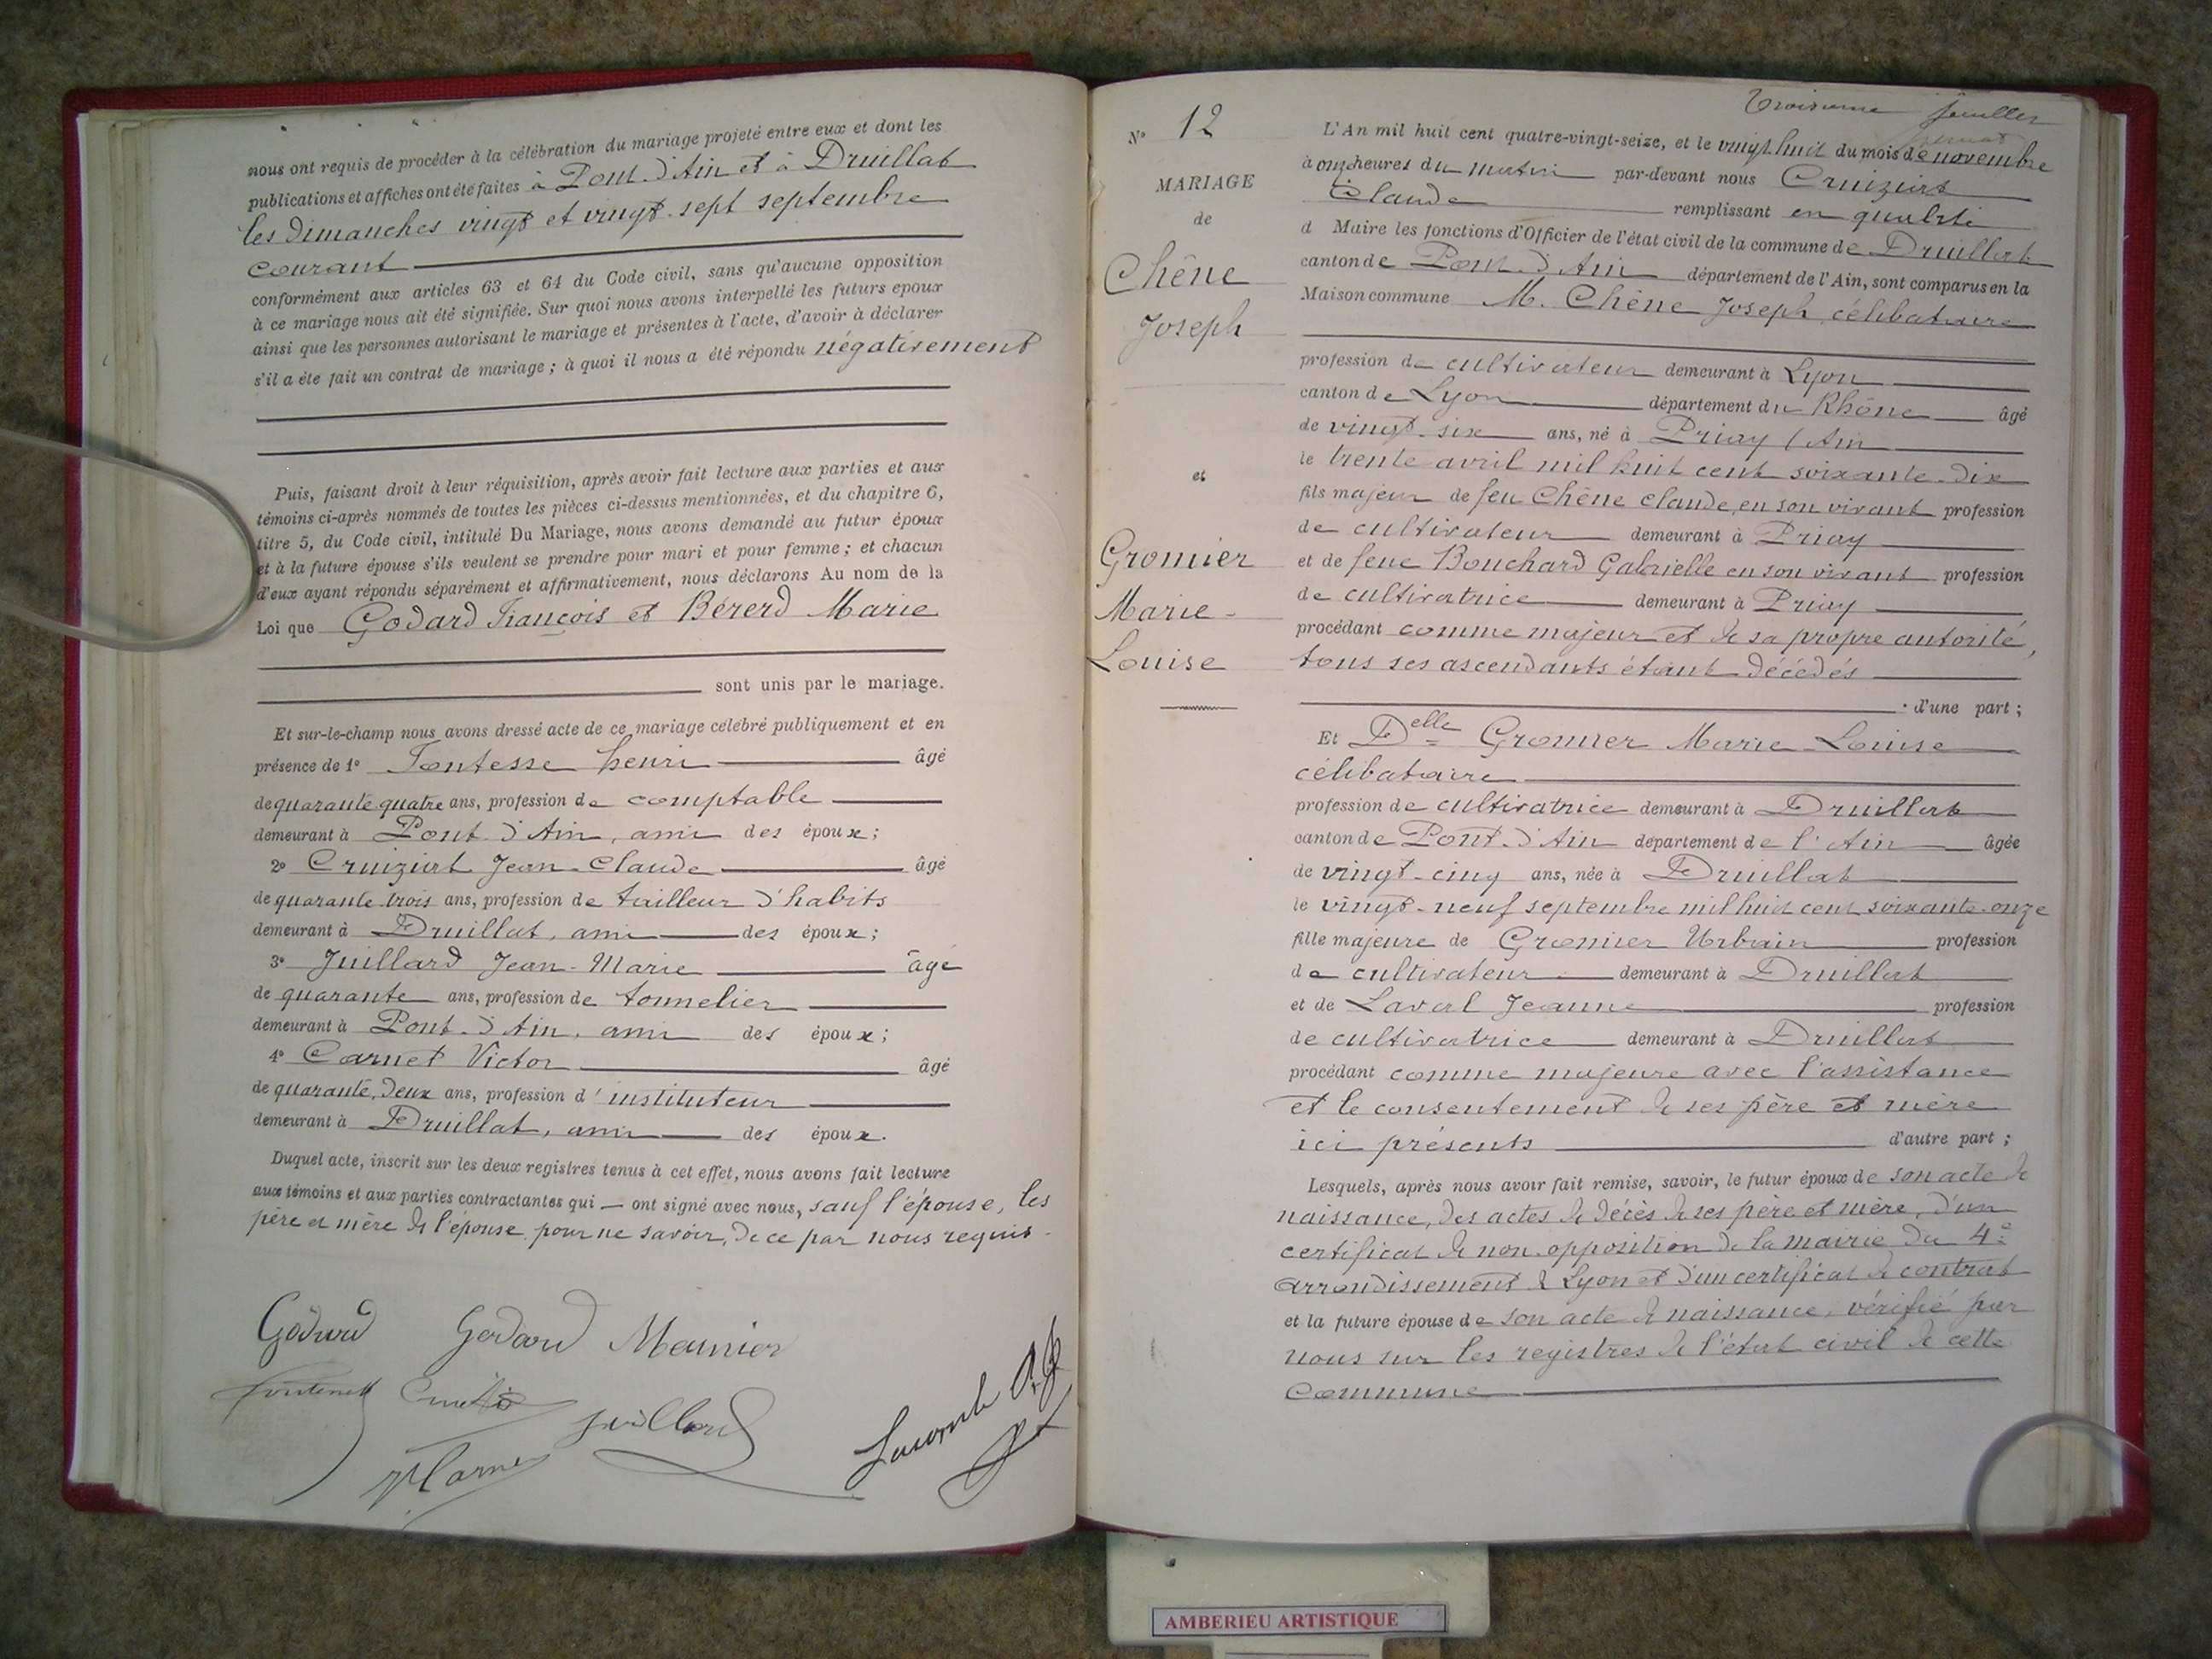 nous ont requis de procéder à la célébration du mariage projeté entre eux et dont les
publications et affiches ont été faites à Pont-d'Ain et à Druillat
les dimanches vingt et vingt-sept septembre
courant
conformément aux articles 63 et 64 du Code civil, sans qu'aucune opposition
à ce mariage nous ait été signifiée. Sur quoi nous avons interpellé les futurs époux
ainsi que les personnes autorisant le mariage et présentes à l'acte, d'avoir à déclarer
s'il a été fait un contrat de mariage ; à quoi il nous a été répondu négativement
Puis, faisant droit à leur réquisition, après avoir fait lecture aux parties et aux
témoins ci-après nommés de toutes les pièces ci-dessus mentionnées, et du chapitre 6,
titre 5, du Code civil, intitulé Du Mariage, nous avons demandé au futur époux
et à la future épouse s'ils veulent se prendre pour mari et pour femme ; et chacun
d'eux ayant répondu séparément et affirmativement, nous déclarons Au nom de la
Loi que Godard François et Bérerd Marie
sont unis par le mariage.
Et sur-le-champ nous avons dressé acte de ce mariage célébré publiquement et en
présence de 1° Fontesse henri âgé
de quarante quatre ans, profession de comptable
demeurant à Pont d'Ain, ami des époux ;
2° Cruiziat Jean-Claude âgé
de quarante trois ans, profession de tailleur d'habits
demeurant à Druillat, ami des époux ;
3° Juillard Jean-Marie âgé
de quarante ans, profession de tonnelier
demeurant à Pont-d'Ain, ami des époux ;
4° Carnet Victor âgé
de quarante deux ans, profession d'instituteur
demeurant à Druillat, ami des époux.
Duquel acte, inscrit sur les deux registres tenus à cet effet, nous avons fait lecture
aux témoins et aux parties contractantes qui ont signé avec nous, sauf l'épouse, les
père et mère de l'épouse pour ne savoir, de ce par nous requis.
Godard Godard Meunier
Juillard
Troisième feuillet
N° 12
MARIAGE
de
Chêne
Joseph
et
Gromier
Marie-
Louise
L'An mil huit cent quatre-vingt-seize, et le vingt huit du mois de novembre
à onze heures du matin par-devant nous Cruiziat
Claude remplissant en qualité
d Maire les fonctions d'Officier de l'état civil de la commune de Druillat
canton de Pont-d'Ain département de l'Ain, sont comparus en la
Maison commune M. Chêne Joseph, célibataire
profession de cultivateur demeurant à Lyon
canton de Lyon département du Rhône âgé
de vingt-six ans, né à Priay (Ain
le trente avril mil huit cent soixante-dix
fils majeur de feu Chêne Claude, en son vivant profession
de cultivateur demeurant à Priay
et de feue Bouchard Gabrielle en son vivant profession
de cultivatrice demeurant à Priay
procédant comme majeur et de sa propre autorité,
tous ses ascendants étant décédés
d'une part ;
Et Delle Gromier Marie-Louise
célibataire
profession de cultivatrice demeurant à Druillat
canton de Pont-d'Ain département de l'Ain âgée
de vingt-cinq ans, née à Druillat
le vingt-neuf septembre mil huit cent soixante-onze
fille majeure de Gromier Urbain profession
de cultivateur demeurant à Druillat
et de Laval Jeanne profession
de cultivatrice demeurant à Druillat
procédant comme majeure avec l'assistance
et le consentement de ses père et mère
ici présents d'autre part ;
Lesquels, après nous avoir fait remise, savoir, le futur époux de son acte de
naissance, des actes de décès de ses père et mère, d'un
certificat de non-opposition de la mairie du 4e
arrondissement de Lyon et d'un certificat de contrat
et la future épouse de son acte de naissance, vérifié par
nous sur les registres de l'état civil de cette
commune
AMBERIEU ARTISTIQUE